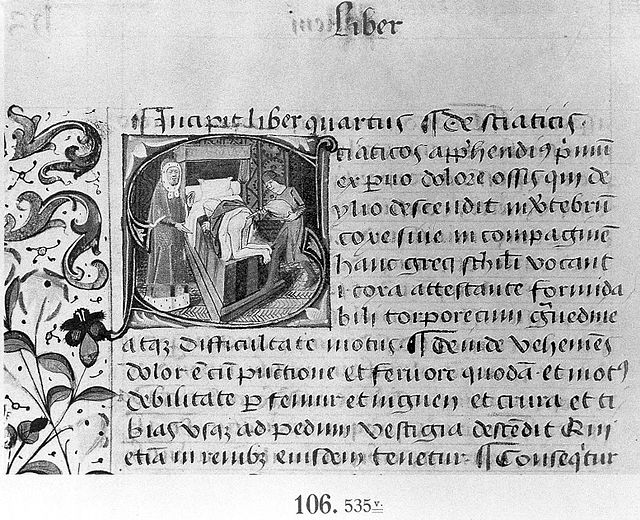 Liber
¶ Incipit liber quartus ¶ de sciaticis.
ciaticos app̄hendi9 p̄mū
ex ꝑuo dolore ossis qui de
ylio descendit in
coxe siue in compagine
hanc greci vocant
coxa attestante formida
bili torporecum
atqȝ difficultate motus. ¶ Deinde vehemēs
dolor ē cū punctione et feruore quodā et mot9
debilitate ꝑ femur et inguen et crura et ti
bias vsqȝ ad pedum vestigia descēdit Qui
etiā in renibȝ eiusdem tenetur ¶ Conseq̄tur
106. 535v.